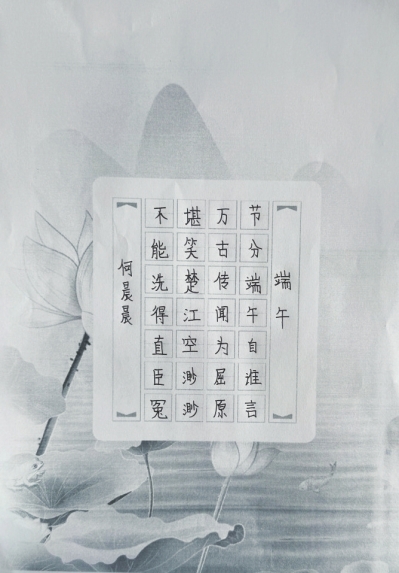 端午
节分端午自谁言
万古传闻为屈原
堪笑楚江空渺渺
不能洗得直臣冤
何晨晨